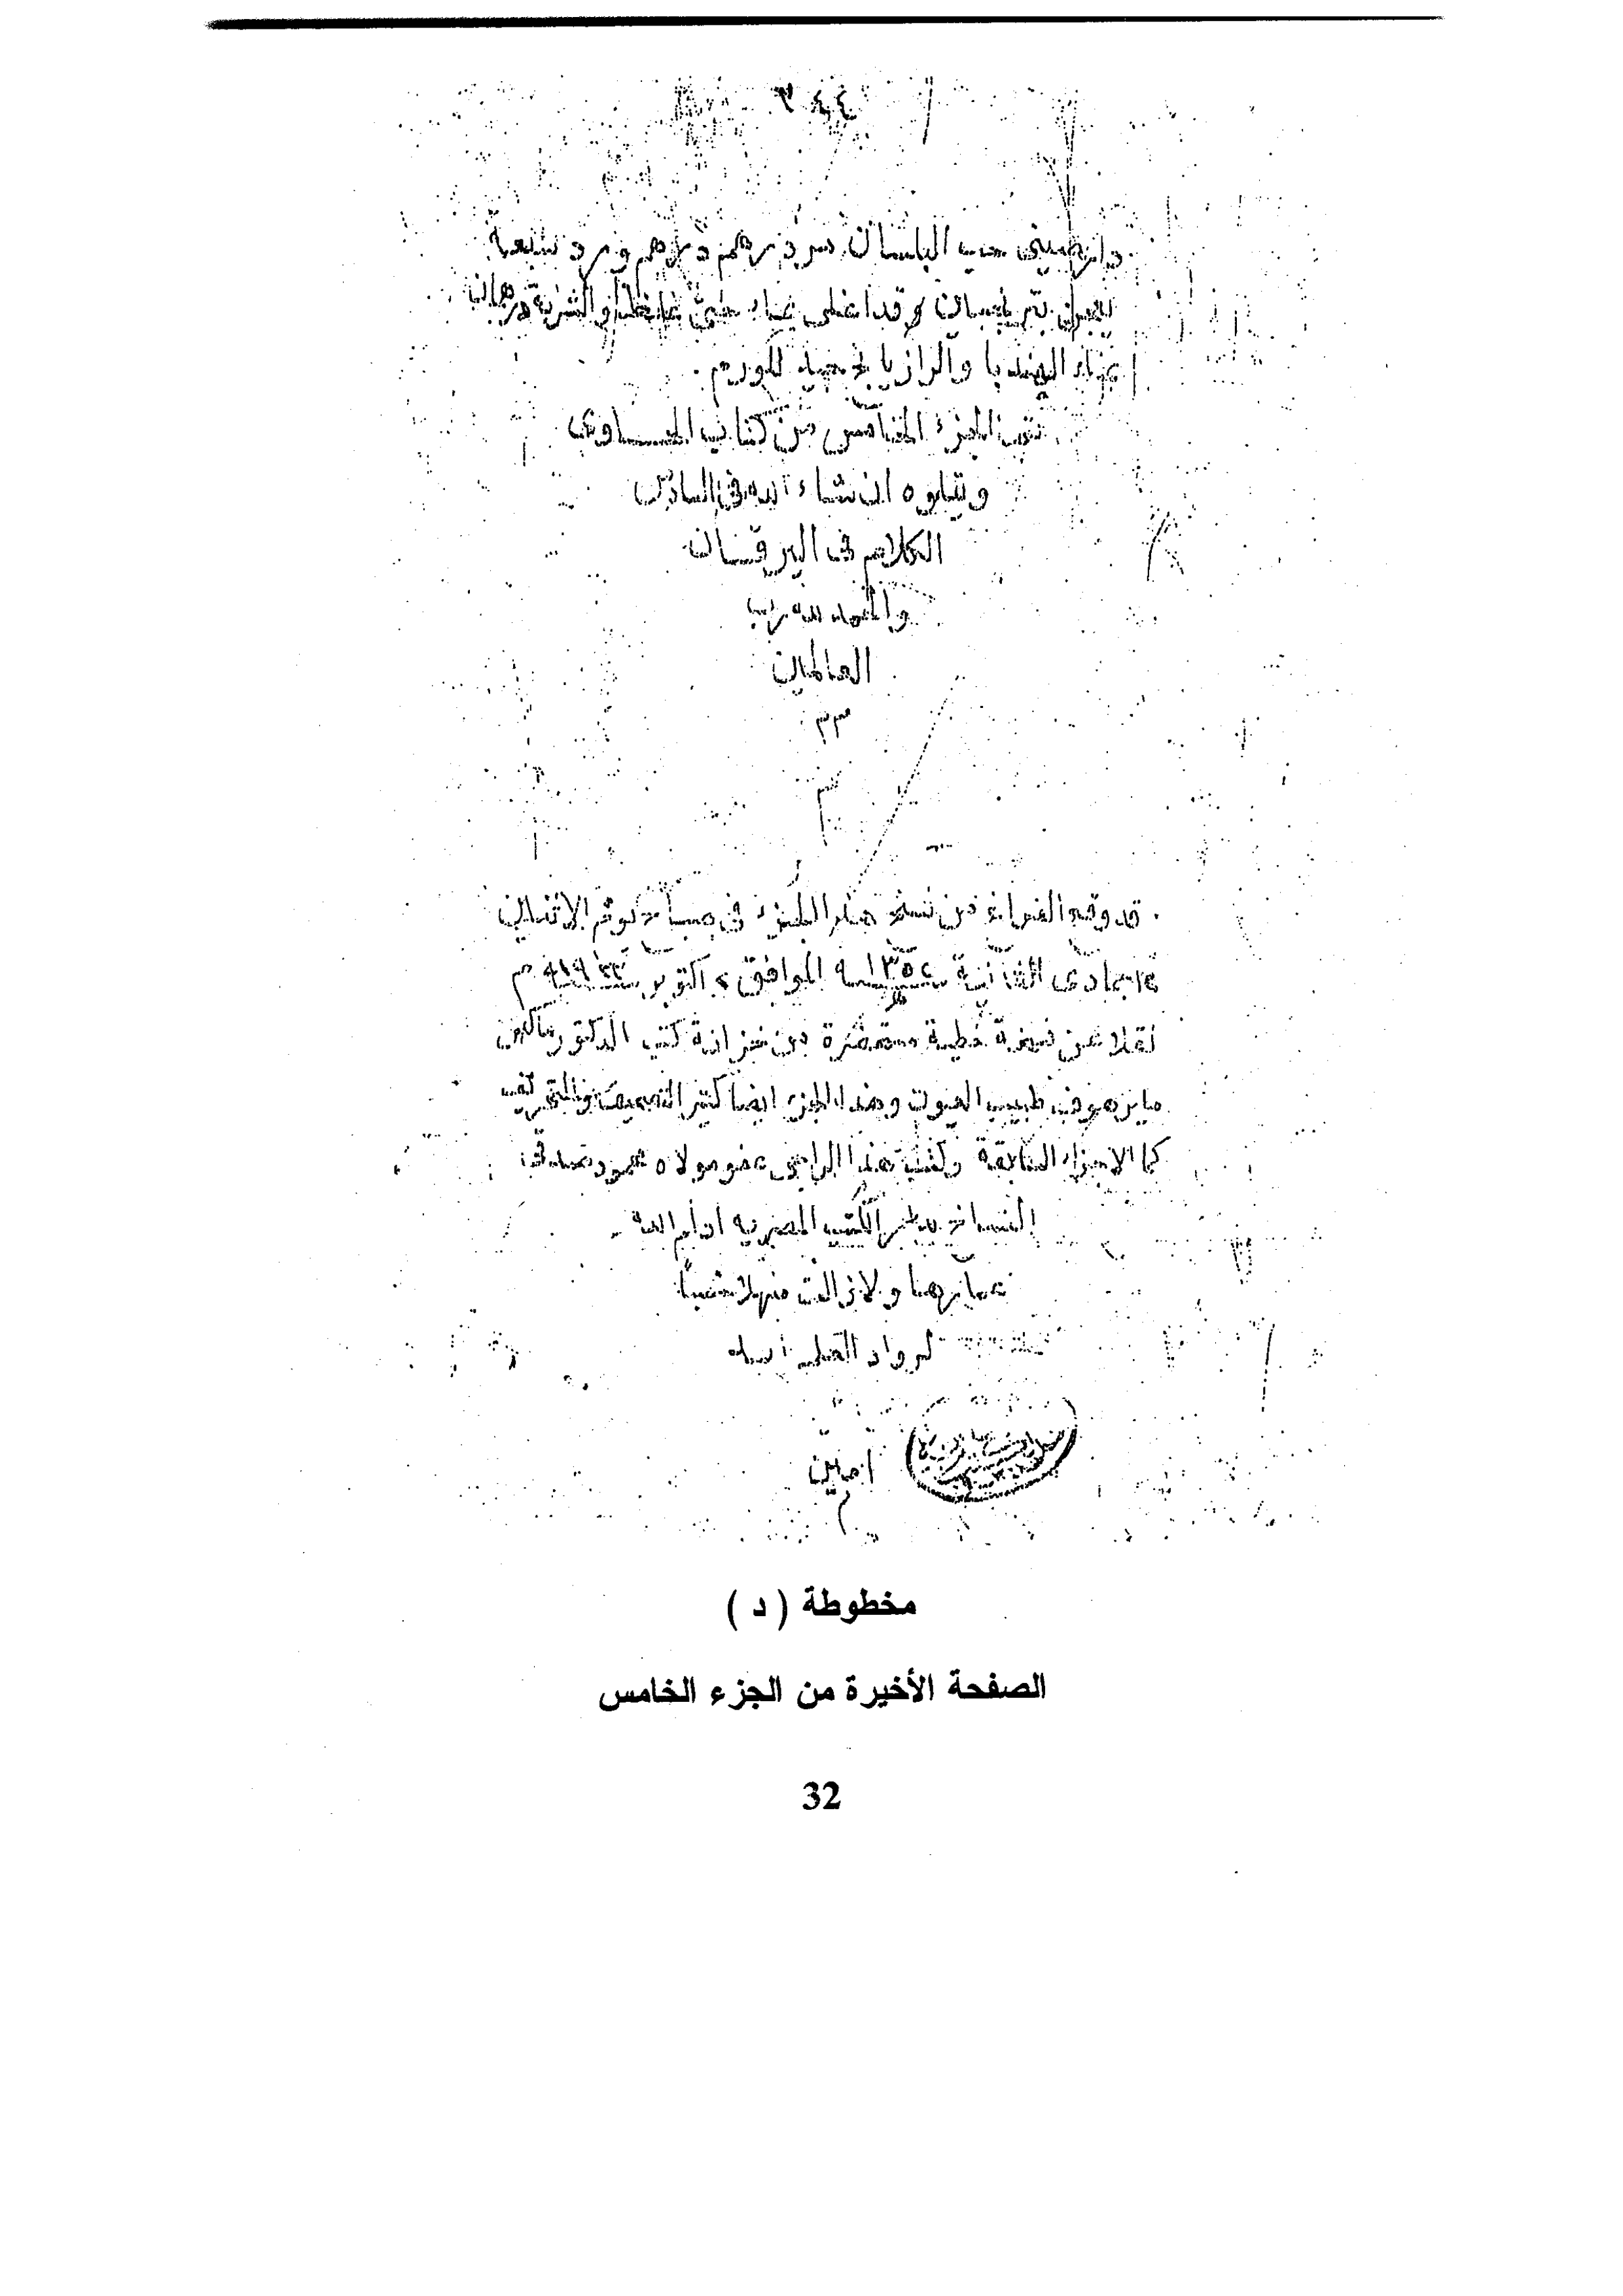 ٣٤٤
دارصيني حب البلسان من درهم درهم ورد سبعة
يعجن وقد اغلى والشربة درهمان
بماء الهندبا والرازيانج جيد للورم
تم الجزء الخامس من كتاب الحاوى
ويتلوه ان شاء الله فى السادس
الكلام فى اليرقان
والحمد لله رب
العالمين
قد وقع الفراغ من نسخ هذا الجزء فى صباح يوم الاثنين
جمادى الثانية ١٣٥٢ الموافق اكتوبر م
نقلا عن نسخة خطية مستحضرة من خزانة كتب الدكتور ماكس
مايرهوف طبيب العيون وهذا الجزء ايضا كثير التصحيف والتحريف
كما الاجزاء السابقة وكتبه هذا الراجى عفو مولاه محمود صدقى
النساخ بدار الكتب المصرية ادام الله
عمارها ولا زالت منهلا عذبا
لرواد العلم
امين
مخطوطة ( د )
الصفحة الأخيرة من الجزء الخامس
32